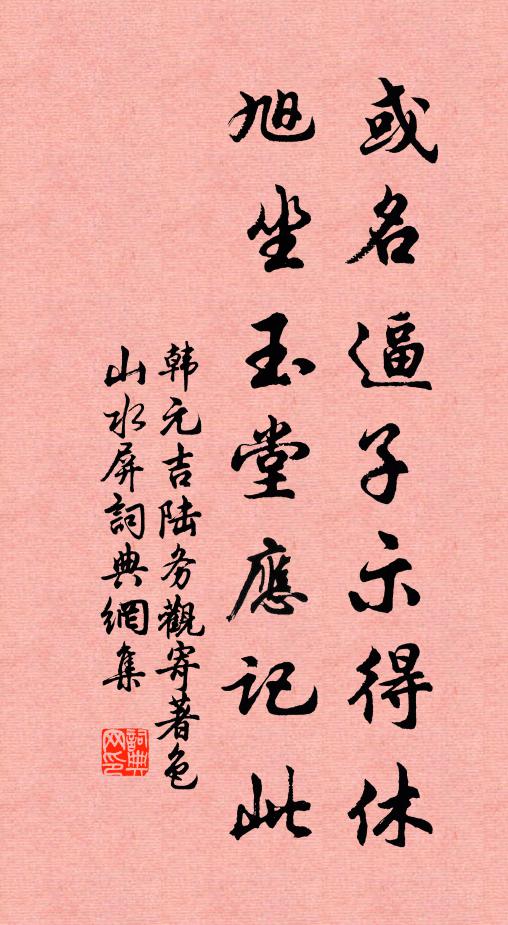 或名逼子示得休
旭坐玉堂應記此
韩元吉陆务觀寄著色
山水屏詞典網集
詞典网印